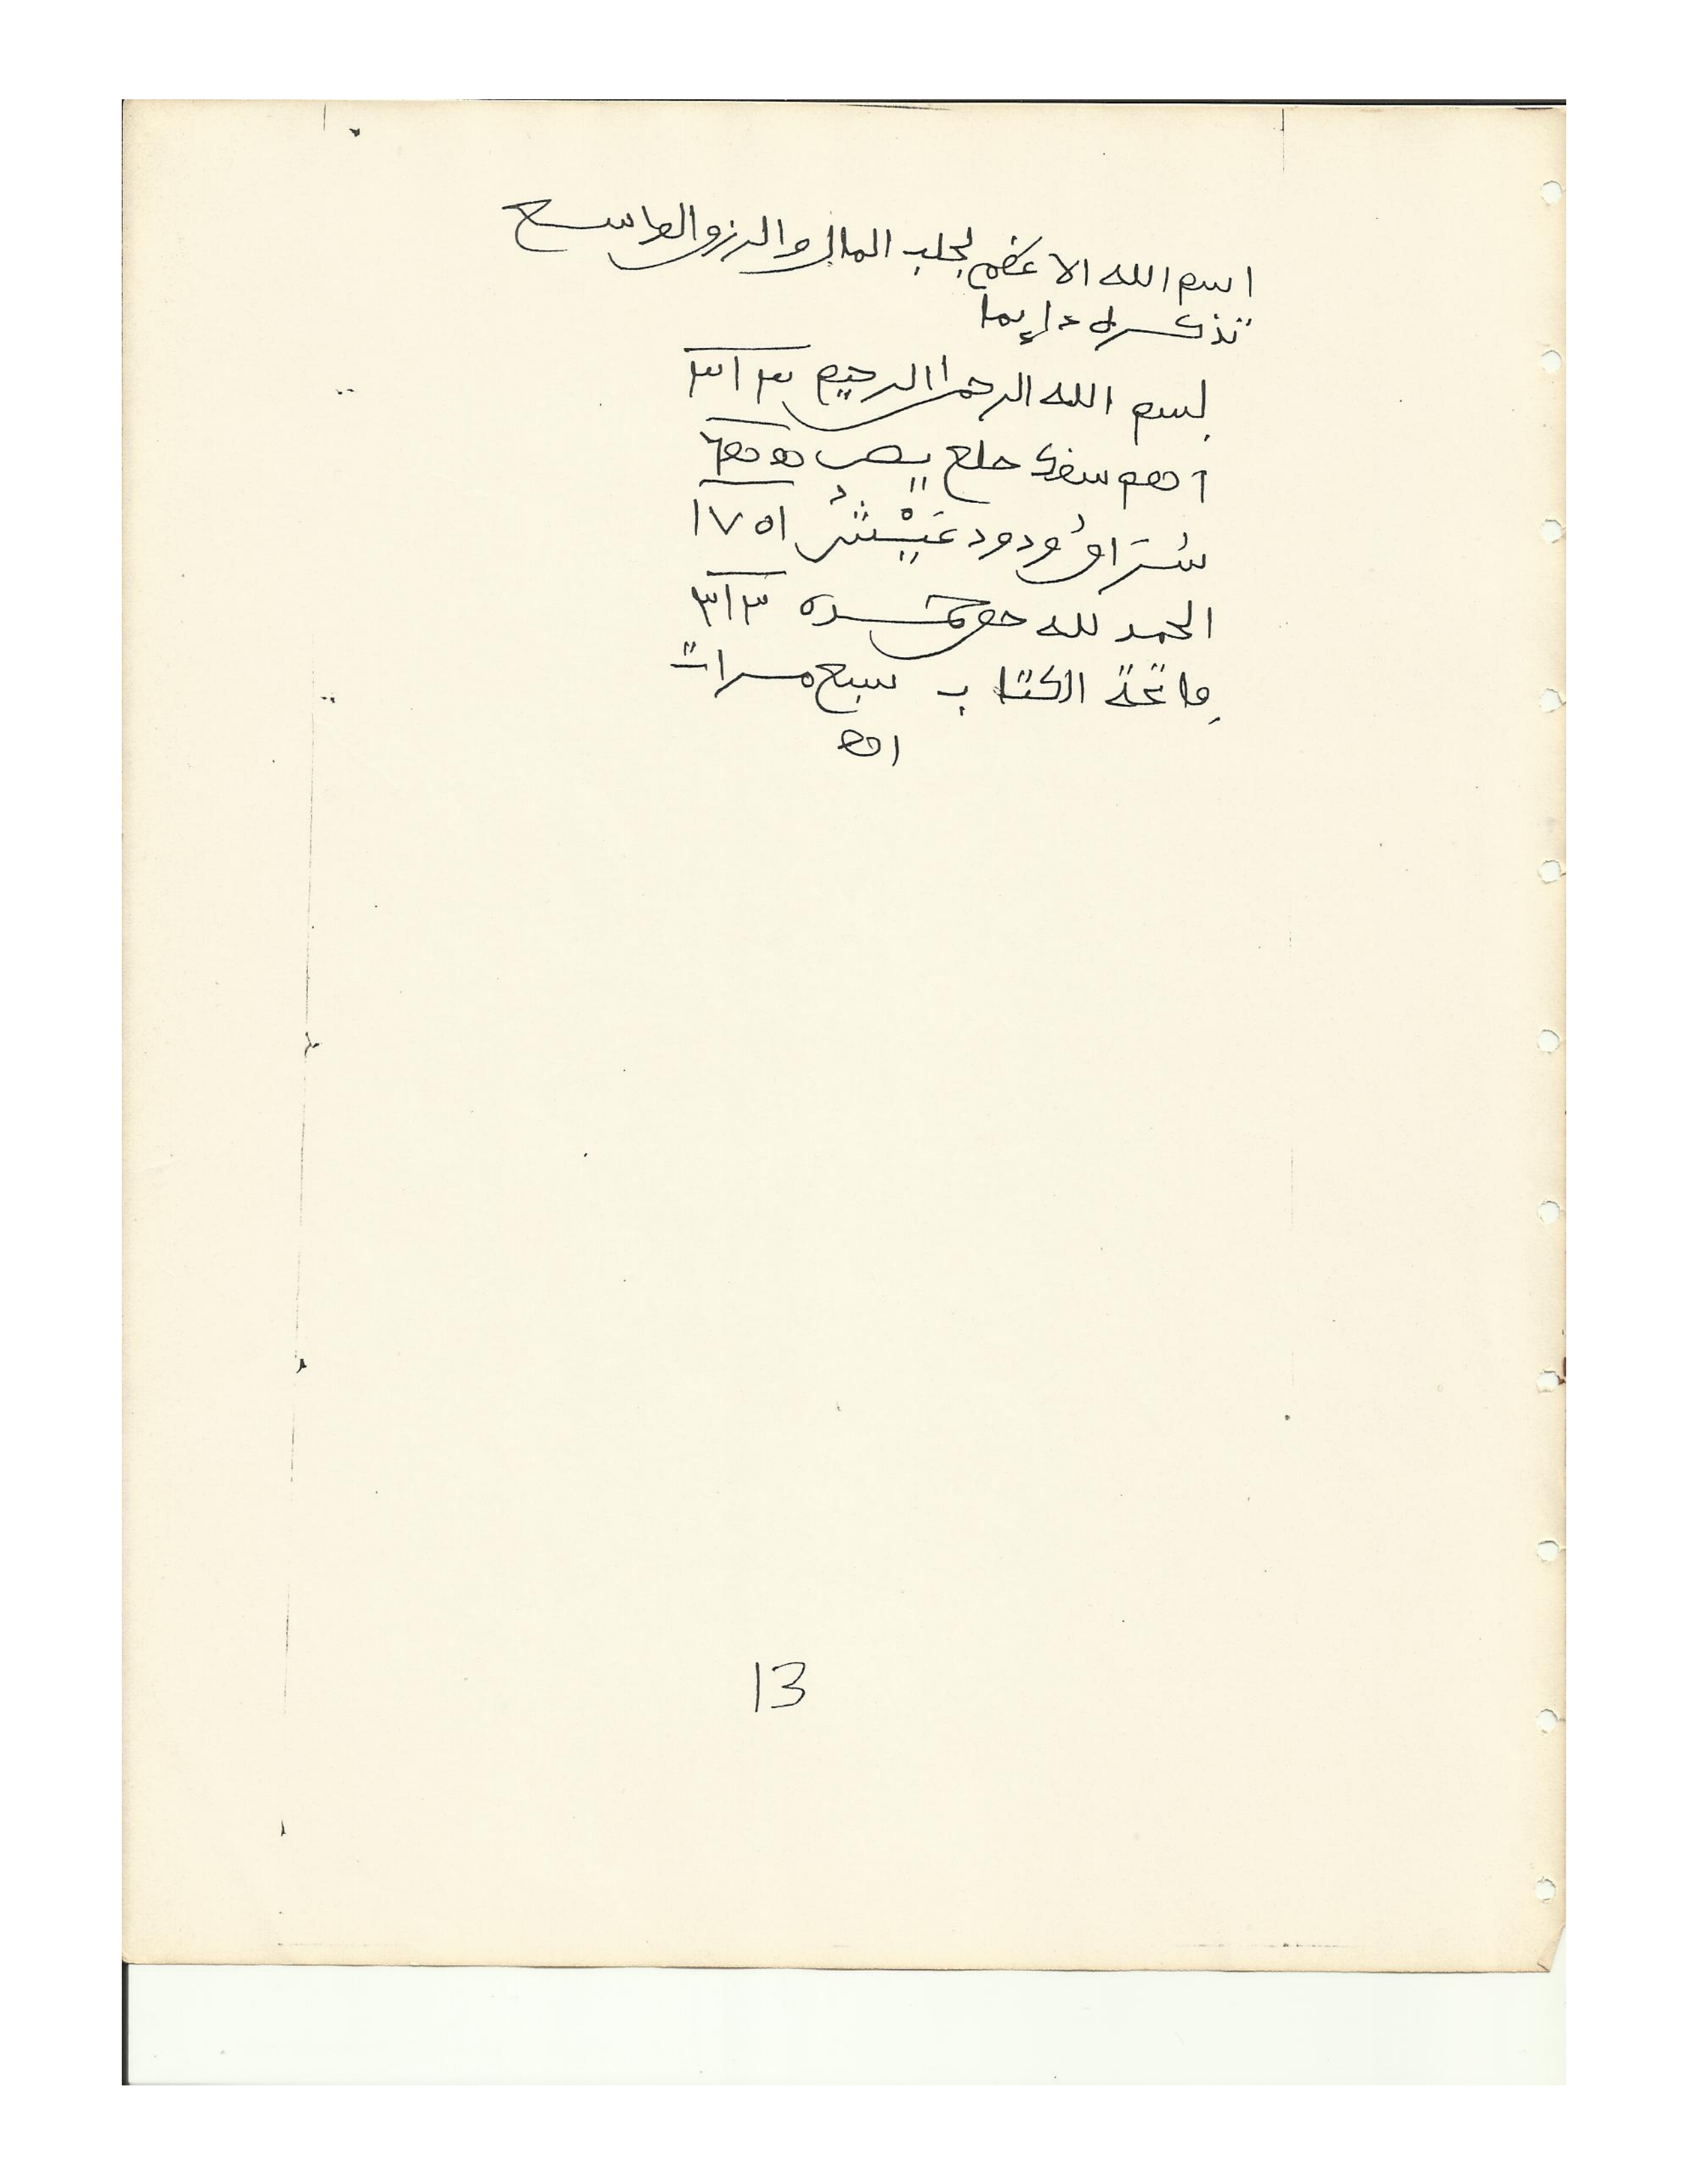 اسم الله الاعظم لجلب المال والرزق الواسع
تذكره دايما
بسم الله الرحمن الرحيم ٣١٣
سفك حلع يص
ودود ١٧٥١
الحمد لله حق حمده ٣١٣
فاتحة الكتاب سبع مرات
اهـ
13